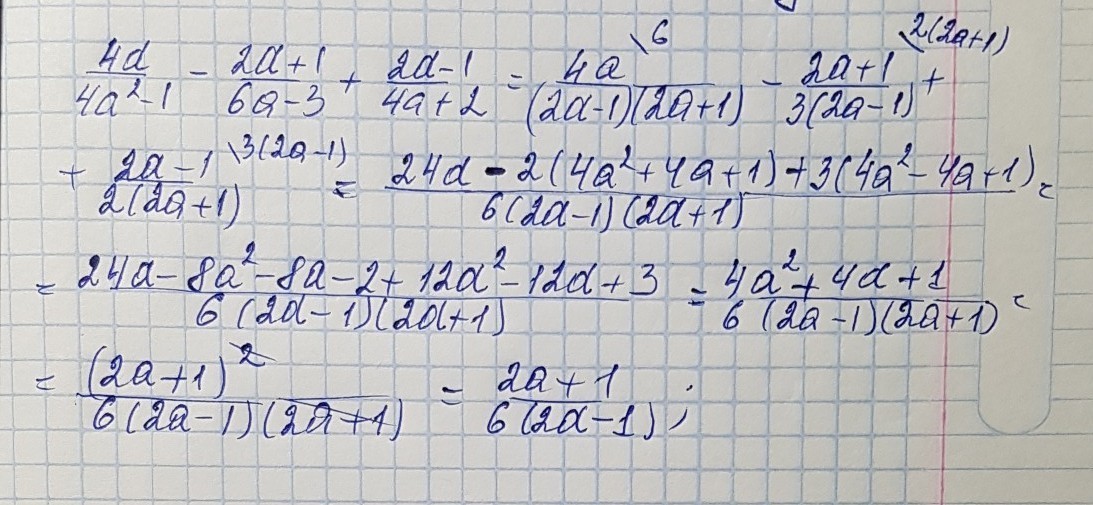 4a/(4a²-1) - (2a+1)/(6a-3) + (2a-1)/(4a+2) = 4a\6/((2a-1)(2a+1)) - (2a+1)\2(2a+1)/(3(2a-1)) +
+ (2a-1)\3(2a-1)/(2(2a+1)) = (24a - 2(4a²+4a+1)+3(4a²-4a+1))/(6(2a-1)(2a+1)) =
= (24a-8a²-8a-2+12a²-12a+3)/(6(2a-1)(2a+1)) = (4a²+4a+1)/(6(2a-1)(2a+1)) =
= (2a+1)²/(6(2a-1)(2a+1)) = (2a+1)/(6(2a-1));